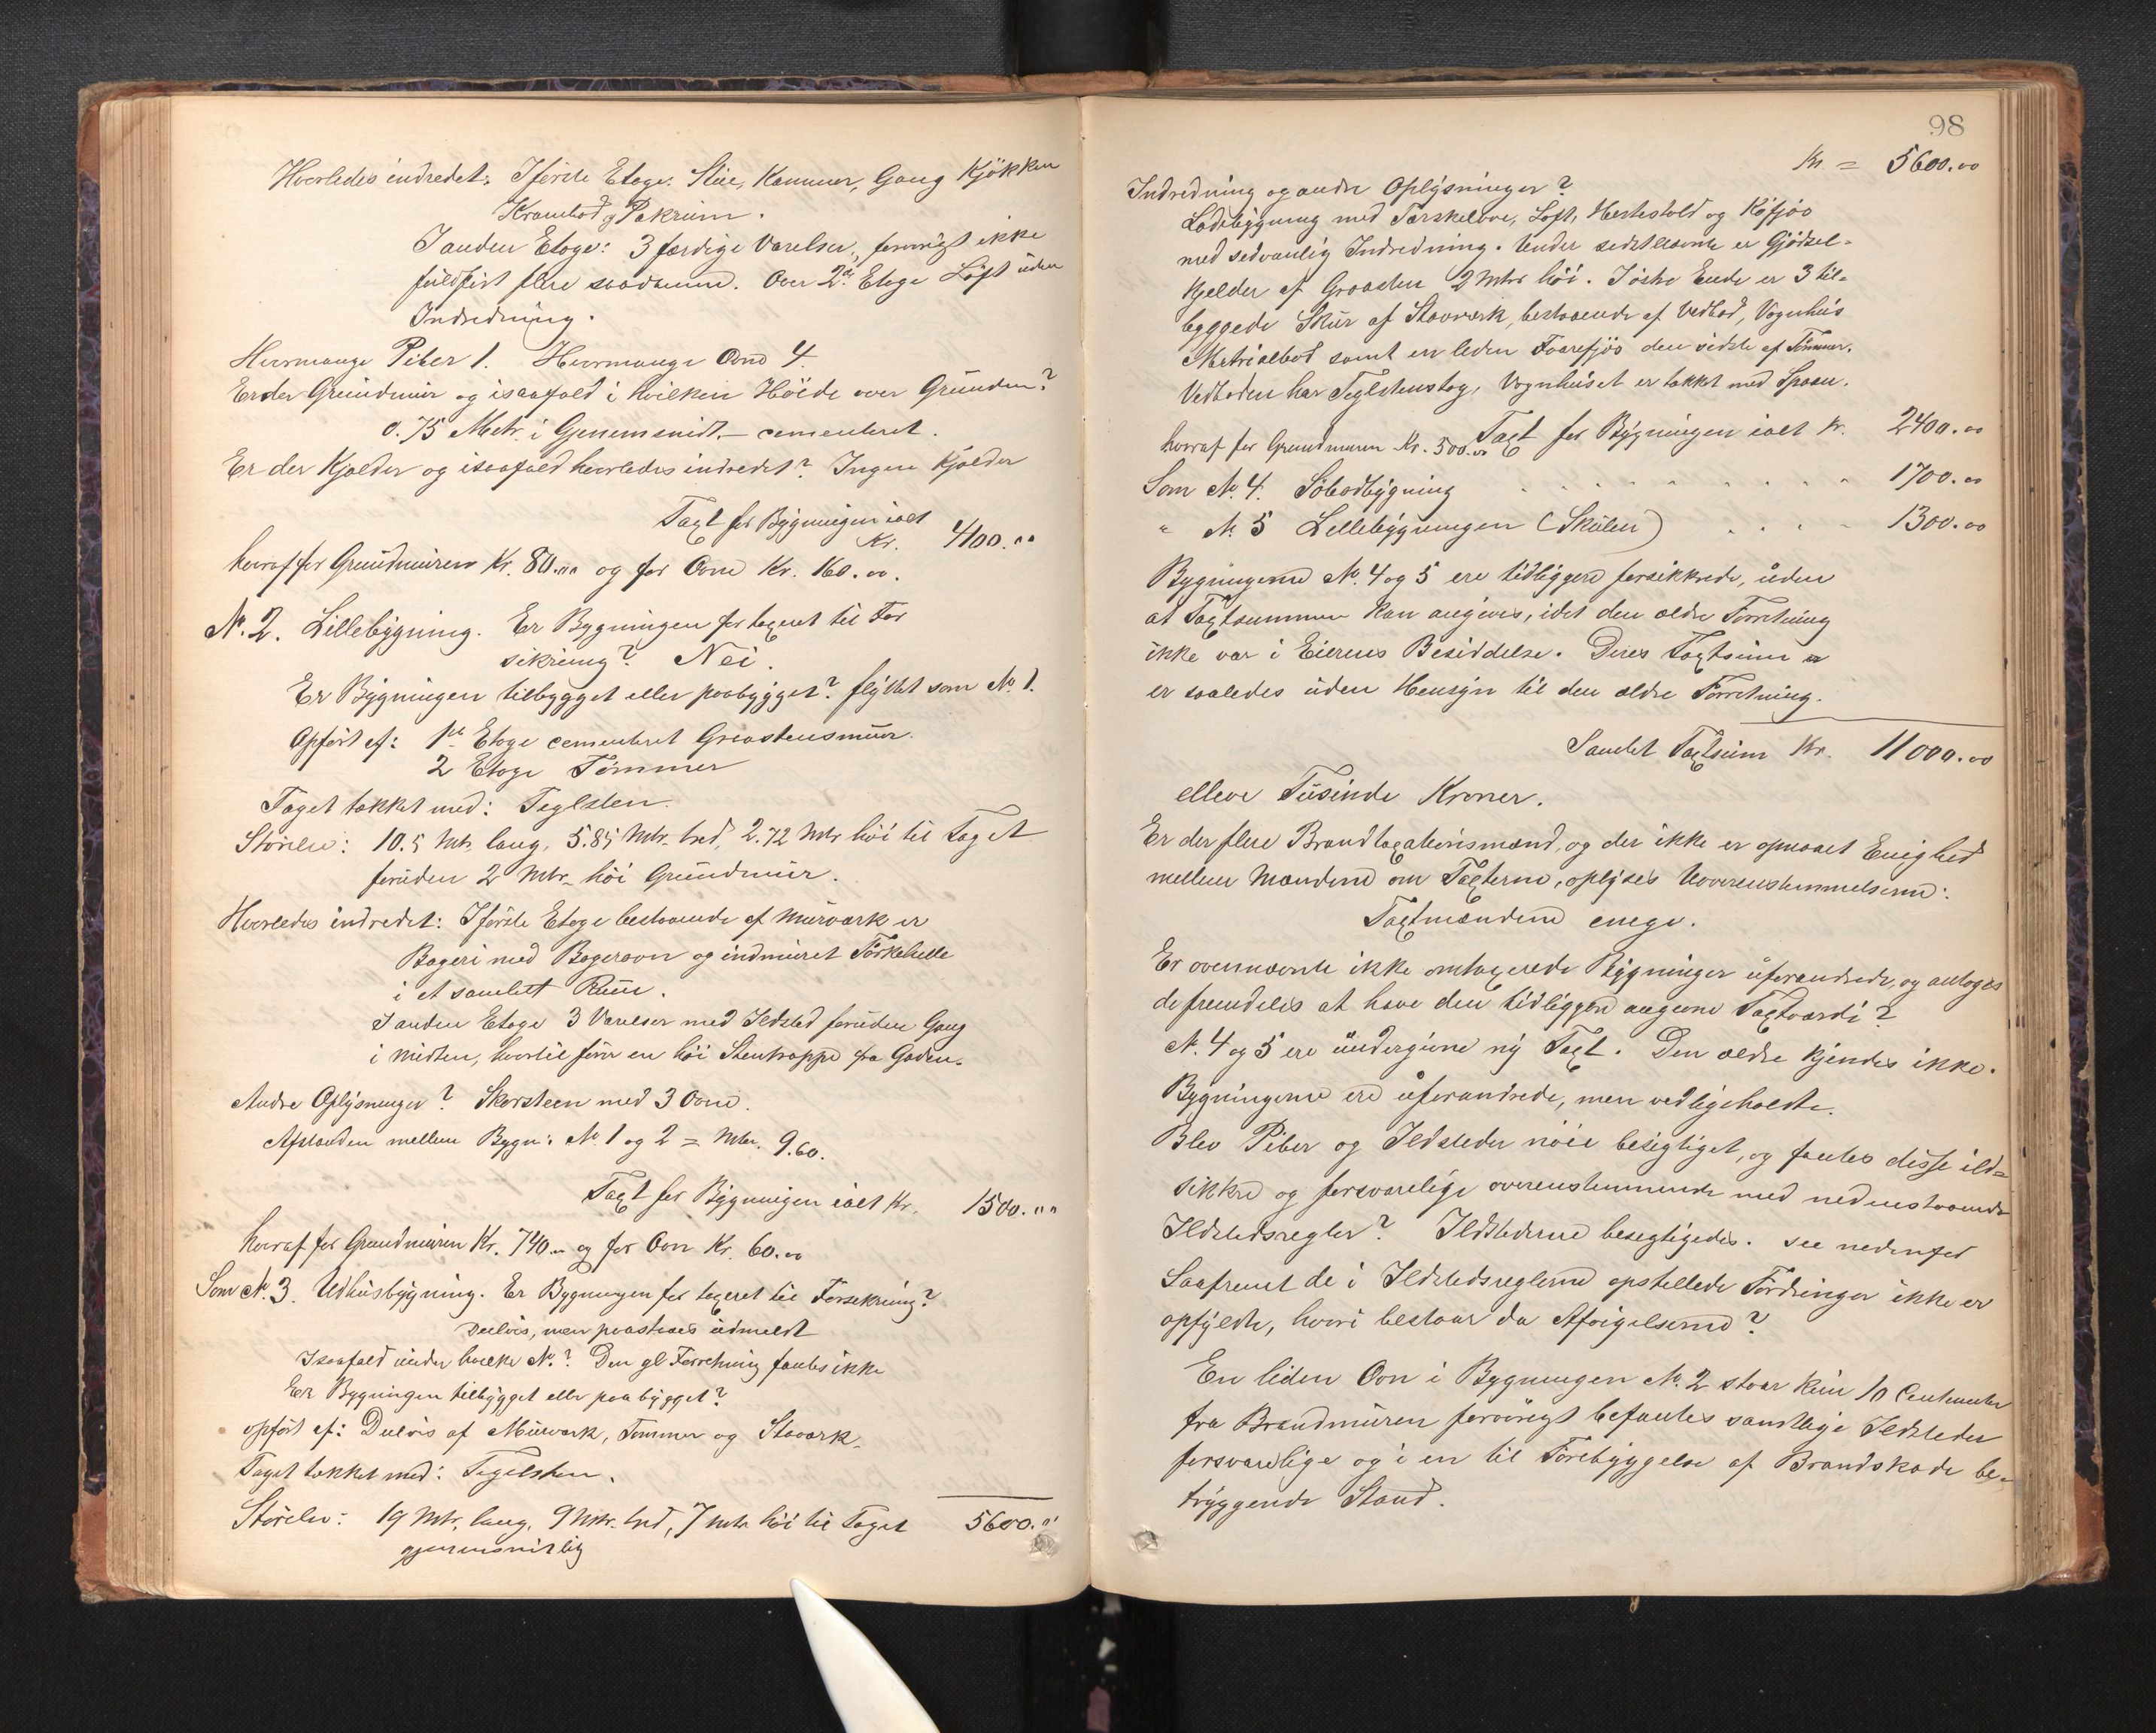 Hvorledes indredet: I förste Etage: Stue, Kammer, Gang Kjökken
Krambod og Pakrum.
I anden Etage: 3 færdige Værelser, forövrigt ikke
fuldfört flere saadanne. Over 2de Etage Loft uden
Indredning.
Hvormange Piber 1. Hvormange Ovne 4.
Er der Grundmur og isaafald i hvilken Höide over Grunden?
0.75 Metr. i Gjenemsnidt, – cementeret.
Er der Kjelder og isaafald hvorledes indredet? Ingen Kjelder
Taxt for Bygningen ialt
Kr. 4100.""
hvoraf for Grundmuren Kr. 80."" og for Ovne Kr. 160.00.
No. 2. Lillebygning. Er Bygningen för taxeret til For
sikring? Nei.
Er Bygningen tilbygget eller paabygget? flyttet som No 1.
Opfört af: 1ste Etage cementeret Graastensmuur.
2 Etage Tömmer
Taget tækket med: Teglsten.
Störelse: 10.5 Mtr. lang, 5.85 Mtr. bred, 2.72 Mtr höi til Taget
foruden 2 Mtr. höi Grundmur.
Hvorledes indredet: I förste Etage bestaaende af Murværk er
Bageri med Bagerovn og indmuret Törkehelle
i et samlett Rum.
I anden Etage 3 Værelser med Ildsted foruden Gang
i Midten, hvortil förer en höi Stentrappe fra Gaden.
Andre Oplysninger? Skorsteen med 3 Ovne.
Afstanden mellem Bygn: No 1 og 2 = Mtr. 9.60.
Taxt for Bygningen ialt Kr. 1500.""
hvoraf for Grundmuren Kr. 740."" og for Ovn Kr. 60.00
Som No. 3. Udhusbygning. Er Bygningen för taxeret til Forsekring?
Deelvis, men paastaaes udmeldt
Isaafald under hvilke No.? Den gl Forretning fantes ikke
Er Bygningen tilbygget eller paabygget?
opfört af: Delvis af Murværk, Tömmer og Stavværk.
Taget tækket med: Teglsten.
Störelse: 19 Mtr. lang, 9 Mtr. bred, 7 Mtr höi til Taget 5600.""
gjenemsnitlig
98
Kr. = 5600.00
Indredning og andre Oplysninger?
Ladebygning med Tærskelove, Loft, Hestestald og Köfjös
med sedvanlig Indredning. Under sidstnævnte er Gjödsel-
kjelder af Graasten 2 Mtr höi. I östre Ende er 3 til-
byggede Skur af Stavværk, bestaaende af Vedbod, Vognhus
Matrialbod samt en liden Faarefjös den sidste af Tömmer.
Vedboden har Teglstenstag, Vognhuset er tækket med Spaan.
hvoraf for Grundmuren Kr. 500.00 Taxt for Bygningen ialt Kr. 2400.00
Som No. 4. Söbodbygning . . . . . . . . . . 1700.00
" No 5 Lillebygningen (Skulen) . . . . 1300.00
Bygningerne No. 4 og 5 ere tidligere forsikkrede, uden
at Taxtsummen kan angives, idet den ældre Forretning
ikke var i Eierens Besiddelse. Deres Taxtsum
er saaledes uden Hensyn til den ældre Forretning.
Samlet Taxtsum Kr. 11000.00
elleve Tusinde Kroner.
Er der flere Brandtaxationsmænd, og der ikke er opnaaet Enighed
mellem Mændene om Taxterne, oplyses Uoverenstemmelserne:
Taxtmændene enige.
Er ovennævnte ikke omtaxerede Bygninger uforandrede, og antages
de fremdeles at have den tidligere angivne Taxtværdi?
No. 4 og 5 ere undergivne ny Taxt. Den ældre kjendes ikke.
Bygningerne ere uforandrede, men vedligeholdte.
Blev Piber og Ildsteder nöie besigtiget, og fantes disse ild-
sikkre og forsvarlige overenstemmende med nedenstaaende
Ildstedsregler? Ildstederne besigtigedes. see nedenfor
Saafremt de i Ildstedsreglerne opstillede Fordringer ikke er
opfyldte, hvori bestaar da Afvigelserne?
En liden Ovn i Bygningen No. 2 staar kun 10 Centimeter
fra Brandmuren forövrigt befantes samtlige Ildsteder
forsvarlige og i en til Forebyggelse af Brandskade be-
tryggende Stand.